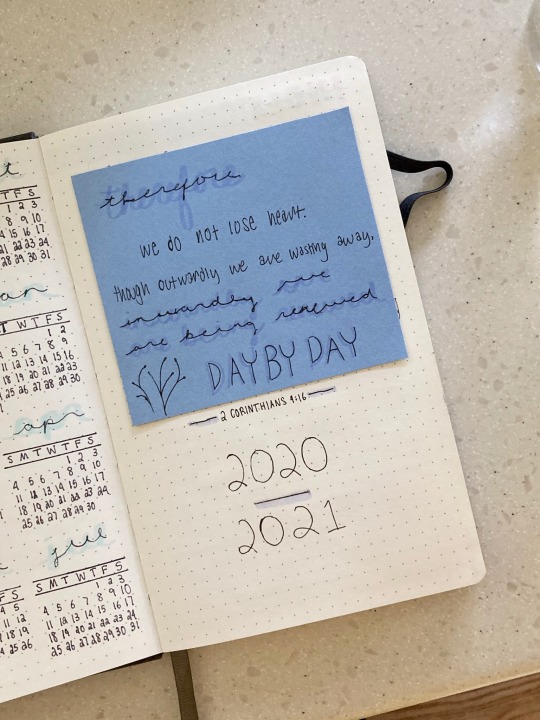 TFS
1 2 3
8 9 10
15 16 17
21 22 23 24
30 31
an
T W T F S
1 2
4 5 6 7 8 9
11 12 13 14 15 16
18 19 20 21 22 23
25 26 27 28 29 30
apr
S M T W T F S
1 2 3
4 5 6 7 8 9 10
11 12 13 14 15 16 17
18 19 20 21 22 23 24
25 26 27 28 29 30
jul
S M T W T F S
1 2 3
4 5 6 7 8 9 10
11 12 13 14 15 16 17
18 19 20 21 22 23 24
25 26 27 28 29 30 31
F S
4 5
11 12
18 19
25 26
therefore
we do not lose heart.
though outwardly we are wasting away,
inwardly we
are being renewed
DAY BY DAY
2 CORINTHIANS 4:16
2020
2021